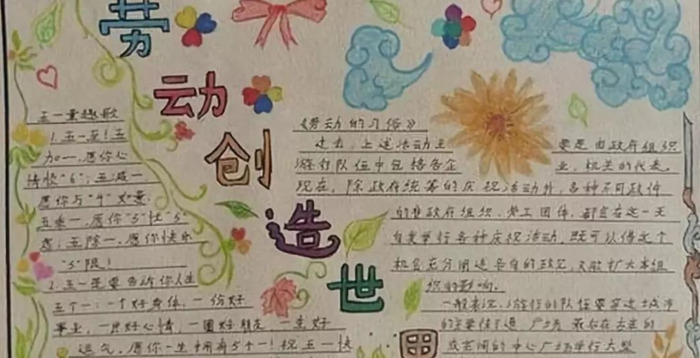 劳
动
创
造
世
界
五一童趣歌
1.五一至!五
加一,愿你心
情快"6";五减一
愿你与"4"如意;
五乘一,愿你"5"忧"5"
虑;五除一,愿你快乐
"5"限!
2.五一是要告诉你人生
五个一:一个好身体,一份好
事业,一片好心情,一圈好朋友,一生好
运气,愿你一生拥有5个一!祝五一快
《劳动的习俗》
过去,上述活动主要是由政府组织
游行队伍中包括各企业,机关的代表。
现在,除政府统筹的庆祝活动外,各种不同政体
的非政府组织,劳工团体,都会在这一天
自发举行各种庆祝活动,既可以借这个
机会充分阐述各自的政见,又能扩大本组
织的影响。
一般来说,游行的队伍要穿过城市
的主要街道,广场,最后在古老的
或空间的中心广场举行大型